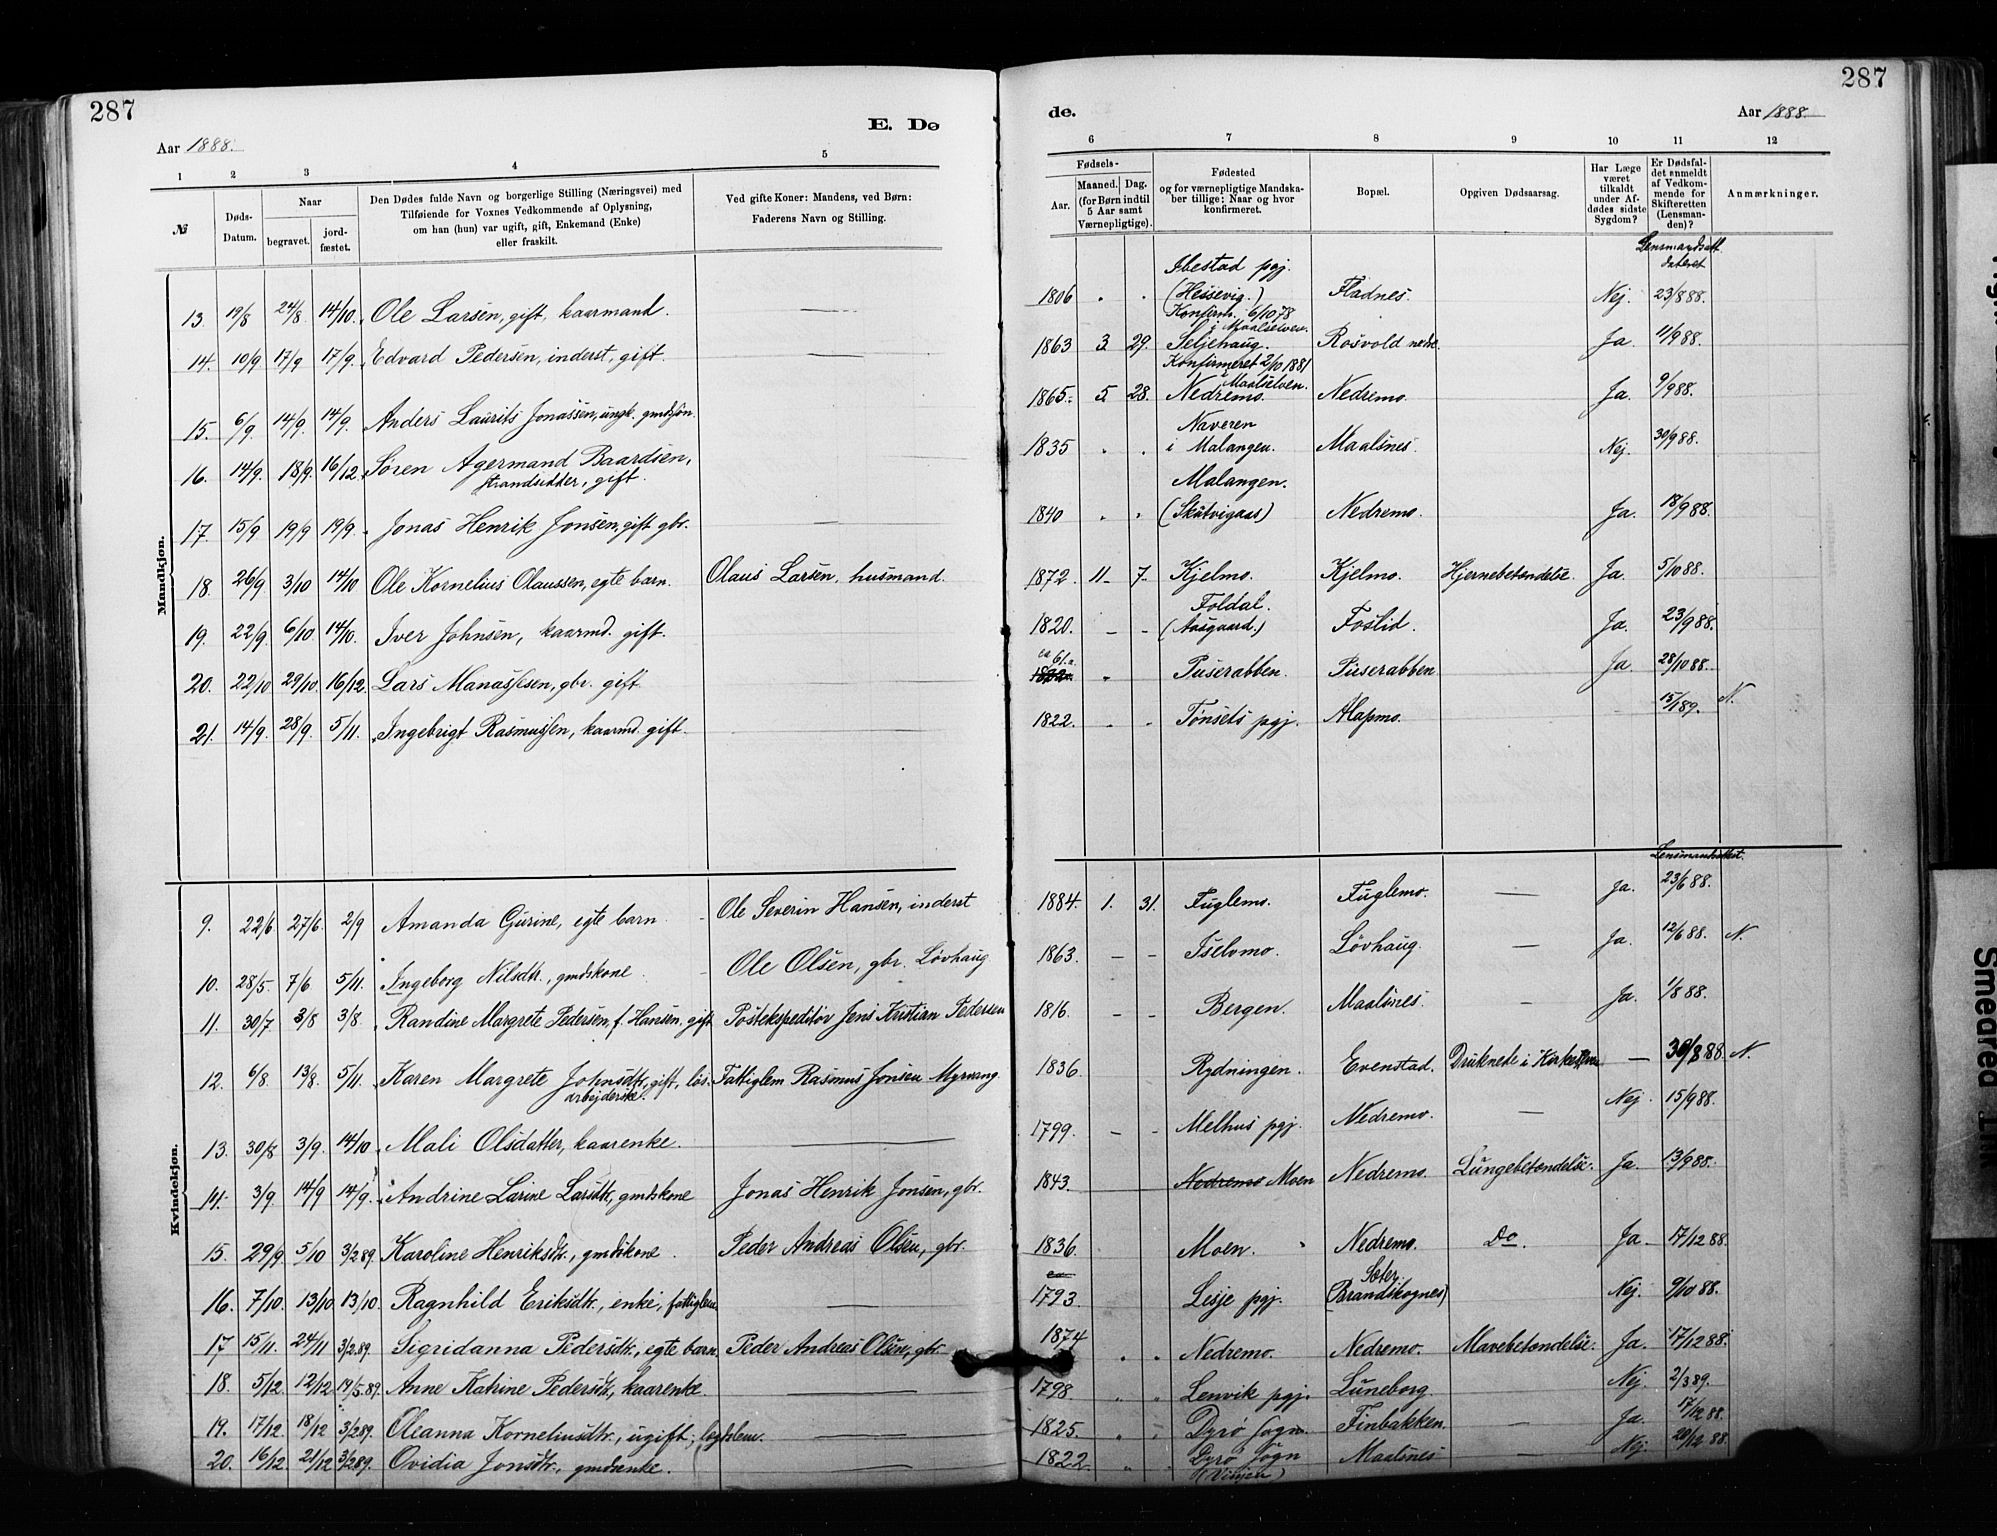 287
287
Aar 1888.
E. Dø
de.
Aar 1888.
1 2 3 4 5
6 7 8 9 10 11 12
№
Døds-Datum.
Naar
begravet.
jord-fæstet.
Den Dødes fulde Navn og borgerlige Stilling (Næringsvei) med
Tilføiende for Voxnes Vedkommende af Oplysning,
om han (hun) var ugift, gift, Enkemand (Enke)
eller fraskilt.
Ved gifte Koner: Mandens, ved Børn:
Faderens Navn og Stilling.
Fødsels-
Aar.
Maaned. Dag.
(for Børn indtil
5 Aar samt
Værnepligtige).
Fødested
og for værnepligtige Mandska-
ber tillige: Naar og hvor
konfirmeret.
Bopæl.
Opgiven Dødsaarsag.
Har Læge
været
tilkaldt
under Af-
dødes sidste
Sygdom?
Er Dødsfal-
det anmeldt
af Vedkom-
mende for
Skifteretten
(Lensman-
den)?
Anmærkninger.
Mandkjøn.
Lensmandsatt.
dateret
13. 19/8 24/8. 14/10. Ole Larsen, gift, kaarmand. — 1806 Ibestad pgj. (Hessevig.) Fladnes. Nej. 23/8 88.
14. 10/9 17/9 17/9. Edvard Pedersen, inderst, gift. — 1863 3. 29. Konfirm. 6/10 78 i Maalselven. Seljehaug. Rosvold nedre. Ja. 11/9 88.
15. 6/9. 14/9. 14/9. Anders Laurits Jonassen, ungk. gmdsøn. 1865. 5. 28. Konfirmeret 2/10 1881 i Maalselven. Nedremo. Nedremo. Ja. 9/9 88.
16. 14/9. 18/9. 16/12. Søren Agermand Baardsen, strandsidder, gift. 1835 Naveren i Malangen. Maalsnes. Nej. 30/9 88.
17. 15/9 19/9 19/9. Jonas Henrik Jonsen, gift gbr. — 1840 Malangen. (Skutvigaas) Nedremo. Ja. 18/9 88.
18. 26/9 3/10 14/10 Ole Kornelius Olaussen, egte barn. Olaus Larsen, husmand. 1872. 11 7 Kjelmo. Kjelmo. Hjernebetændelse. Ja. 5/10 88.
19. 22/9. 6/10. 14/10. Iver Johnsen, kaarmd. gift. 1820. Foldal. (Aasgaard.) Foslid. Ja. 23/9 88.
20. 22/10 29/10. 16/12. Lars Manassesen, gbr. gift ca 61 a. Puserabben. Puserabben Ja 28/10 88.
21. 14/9. 28/9. 5/11. Ingebrigt Rasmussen, kaarmd. gift. 1822. Tønsets pgj. Alapmo. 15/1 89. N.
Kvindekjøn.
Lensmandsattest.
9. 22/6 27/6. 2/9 Amanda Gurine, egte barn Ole Severin Hansen, inderst 1884. 1. 31. Fuglemo. Fuglemo. — Ja. 23/6 88.
10. 28/5. 7/6 5/11. Ingeborg Nilsdtr., gmdskone. Ole Olsen, gbr. Løvhaug 1863. Iselvmo. Løvhaug. — Ja. 12/6 88. N.
11. 30/7 3/8 3/8. Randine Margrete Pedersen, f. Hansen. gift Postekspeditør Jens Kristian Pedersen 1816. Bergen. Maalsnes. — Ja. 1/8 88.
12. 6/8. 13/8. 5/11. Karen Margrete Johnsdtr, gift, løsarbejderske. Fattiglem Rasmus Jonsen Myrvang 1836. Rydningen. Evenstad. Druknede i Kirkeelven — 30/8 88. N.
13. 30/8 3/9. 14/10 Mali Olsdatter, kaarenke. — 1799. Melhus pgj. Nedremo. — Nej. 15/9 88.
14. 3/9. 14/9 14/9. Andrine Larine Larsdtr, gmdskone Jonas Henrik Jonsen, gbr. 1843. Nedremo Moen Nedremo. Lungebetændelse. Ja. 13/9 88.
15. 29/9 5/10 3/2 89. Karoline Henriksdtr., gmdskone. Peder Andreas Olsen, gbr. 1836. Moen. Nedremo. Do. Ja. 17/12 88.
16. 7/10. 13/10 13/10. Ragnhild Eriksdtr., enke, fattiglem — 1793. Lesje pgj. Sæter. (Brandskognes) Nej. 9/10 88.
17. 15/11. 24/11 3/2 89. Sigridanna Pedersdtr., egte barn. Peder Andreas Olsen, gbr. 1874 Nedremo. Nedremo. Mavebetændelse. Ja. 17/12 88.
18. 5/12. 12/12 19/5 89. Anne Katrine Pedersdtr, kaarenke. — 1798. Lenvik pgj. Luneborg. Nej. 2/3 89.
19. 17/12. 18/12 3/2 89. Oleanna Korneliusdtr., ugift, lægdslem. — 1825. Dyrø Sogn. Finbakken. — Ja. 17/12 88.
20. 16/12. 21/12 3/2 89. Ovidia Jonsdtr., gmdsenke. — 1822. Dyrø Sogn Maalsnes — Nej. 20/12 88.
Smeared Ink